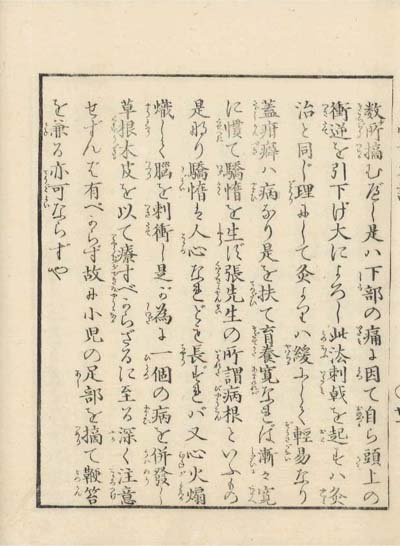 数所摘むべし是ハ下部の痛に因て自ら頭上の
衝逆を引下げ大によろし此法刺戟を起すハ灸
治と同じ理にして灸よりハ緩ふしく軽易なり
蓋疳癖ハ病なり是を扶て育養寛なれは漸々寛
に慣て驕惰を生ず張先生の所謂病根といふもの
是なり驕惰ハ人心なれども長ずれバ又心火煽
熾しく脳を刺衝し是が為に一個の病を併発し
草根木皮を以て療すべからざるに至る深く注意
せずんバ有べからず故に小児の足部を摘て鞭笞
を兼る亦可ならずや